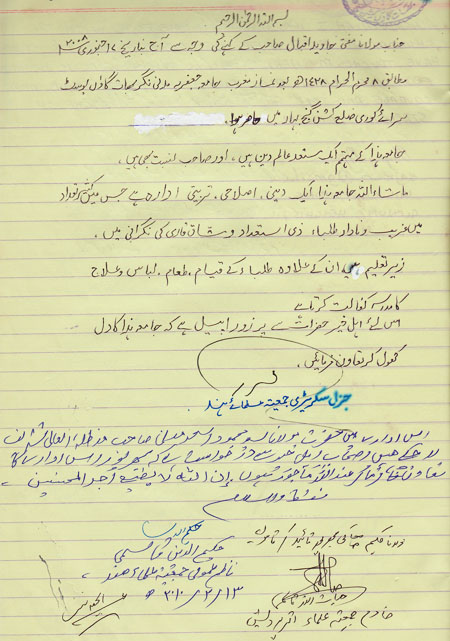 بسم اللہ الرحمن الرحیم
جناب مولانا مفتی جاوید اقبال صاحب کے کہنے کی وجہ سے آج بتاریخ ۱۷ جنوری ۲۰۰۸
مطابق ۸ محرم الحرام ۱۴۲۸ھ بعد نماز مغرب جامعہ جعفریہ مدنی نگر
سرائے کوری ضلع کشن گنج بہار میں حاضر ہوا۔
جامعہ ہذا کے مہتمم ایک مستند عالم دین ہیں، اور صاحب نسبت بھی ہیں۔
ماشاء اللہ جامعہ ہذا ایک دینی، اصلاحی، تربیتی ادارہ ہے جس میں کثیر تعداد
میں غریب و نادار طلباء ذی استعداد و مشاق قاری کی نگرانی میں۔
زیر تعلیم ہیں ان کے علاوہ طلباء کے قیام، طعام، لباس و علاج
کا مدرسہ کفالت کرتا ہے
اس لئے اہل خیر حضرات سے پر زور اپیل ہے کہ جامعہ ہذا کا دل
کھول کر تعاون فرمائیں۔
جنرل سکریٹری جمعیۃ علمائے ہند
اس ادارہ میں حضرت مولانا سید محمود اسعد مدنی صاحب مدظلہ العالی تشریف
لا چکے ہیں
إن الله لا يضيع أجر المحسنين
فقط والسلام
حکیم الدین قاسمی
ناظم عمومی جمعیۃ علماء ہند
۲۰۱۰/۲/۱۳
خادم جمعیۃ علماء اتر پردیش